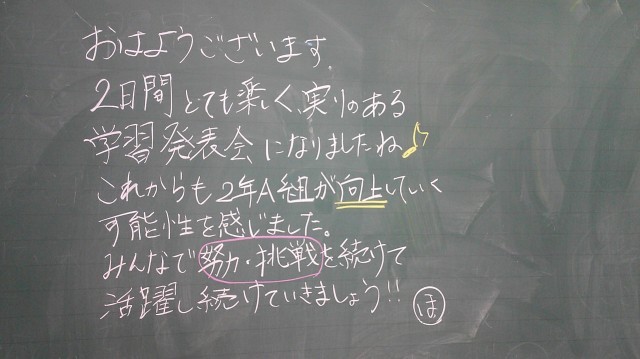 おはようございます.
2日間とても楽しく、実りのある
学習発表会になりましたね♪
これからも2年A組が向上していく
可能性を感じました。
みんなで努力・挑戦を続けて
活躍し続けていきましょう!! ほ